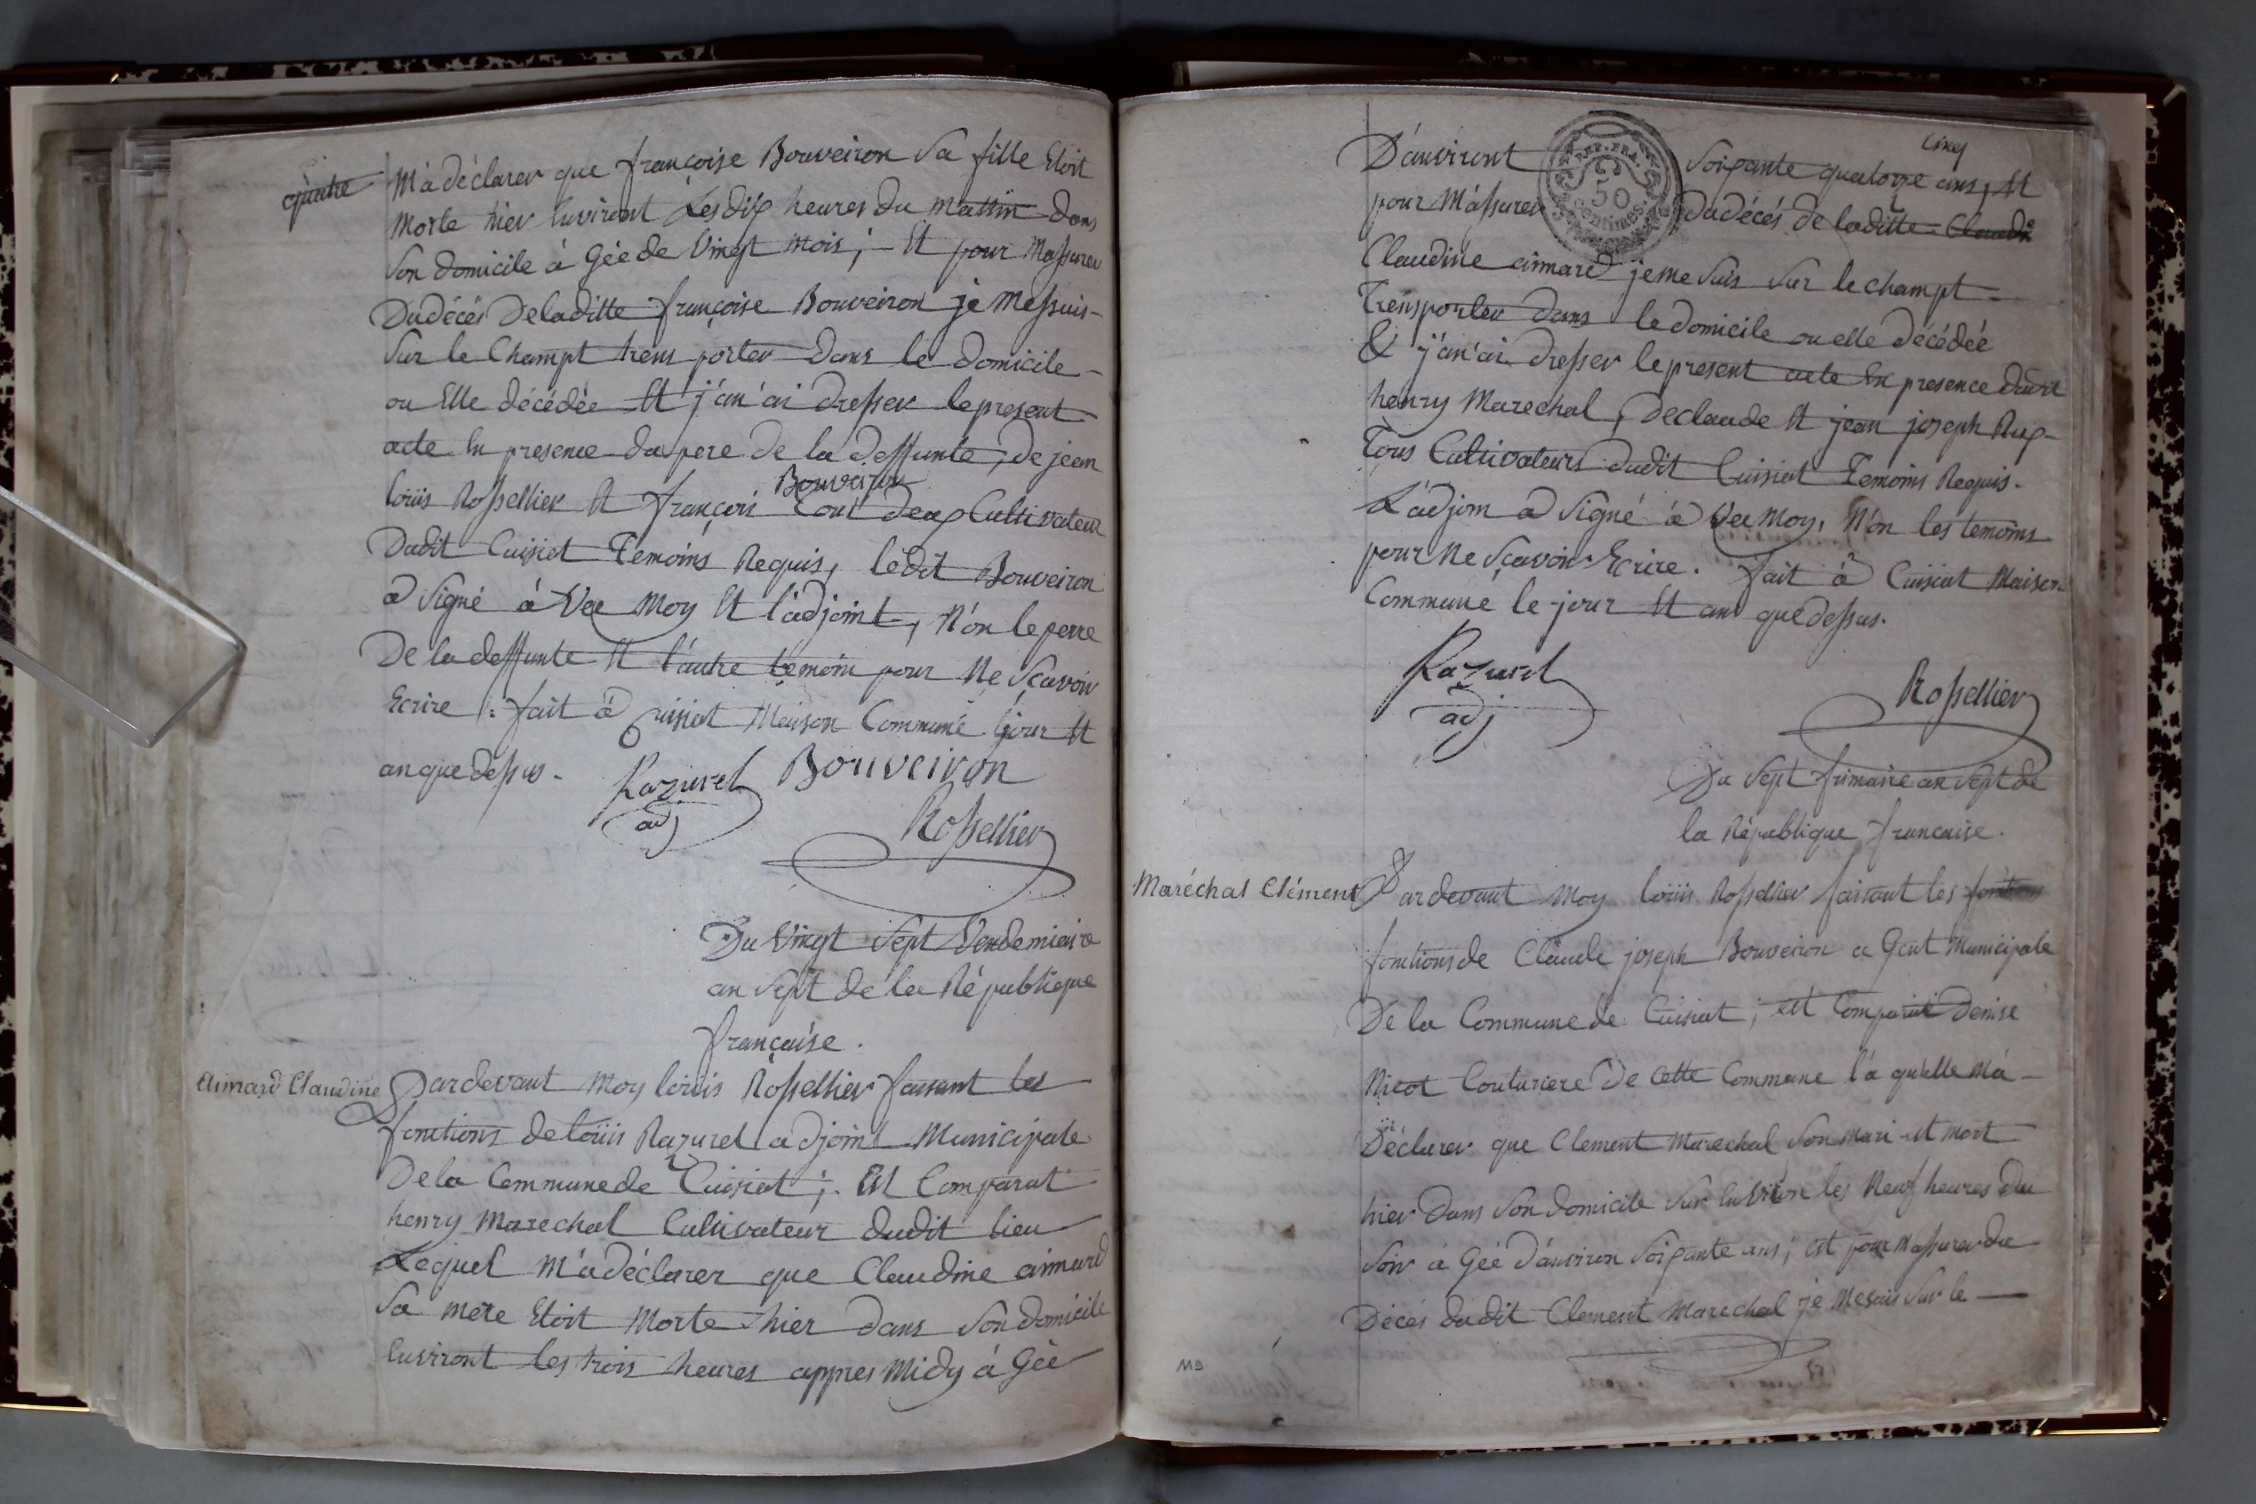 quatre
M'a déclarer que françoise Bouveiron Sa fille Etoit
Morte hier Environt Les dix heures du Mattin dans
Son domicile à Géé de Vingt Mois ; Et pour Massurer
Du décés De laditte françoise Bouveiron je Messuis
Sur le Champt trensporter dans le domicile
ou Elle décédée Et j'an'ai dresser le present
acte En presence du pere de la deffunte, de jean
Bouveiron
loüis Rossellier Et françois tous deux Cultivateur
Dudit Cuisiat Temoins Requis, ledit Bouveiron
a Signé à Vec Moy Et l'adjoint, N'on le perre
De la deffunte Et l'autre temoin pour Ne Scavoir
Ecrire : fait à Cuisiat Maison Commune jour Et
an que dessus.
Razurel Bouveiron
adj
Rossellier
Du Vingt Sept Vendemiaire
an Sept de la République
française.
Aimard Claudine
Pardevant Moy loüis Rossellier faisant les
fonctions de loüis Razurel adjoint Municipale
De la Commune de Cuisiat ; Est Comparut
henry Marechal Cultivateur dudit lieu
Lequel M'a déclarer que Claudine aimard
Sa mere Etoit Morte hier dans Son domicile
Environt les trois heures appres Midy à Géé
Cinq
REP. FRA.
50
centimes
D'anviront Soixante quatorze ans, Et
pour M'assurer du décés de laditte Claudi
Claudine aimard je me Suis Sur le champt
Trensporter dans le domicile ou elle décédéé
& j'an'ai dresser le present acte En presence dudit
henry Marechal, De claude Et jean joseph Rux
Tous Cultivateurs dudit Cuisiat Temoins Requis.
L'adjoin a Signé à Vec Moy, N'on les temoins
pour Ne Scavoir Ecrire. fait à Cuisiat Maison
Commune le jour Et an que dessus.
Razurel
adj
Rossellier
Du Sept frimaire an Sept de
la République francaise.
Maréchal Clément
Pardevant Moy loüis Rossellier faisant les
fonctions de Claude joseph Bouveiron a Gent Municipale
De la Commune de Cuisiat ; est Comparut Denise
Nicot Couturiere de cette Commune la qu'elle M'a
Déclarer que Clement Marechal Son Mari est mort
hier Dans Son domicile Sur Environ les Neuf heures du
Soir a Géé D'anviron Soixante ans ; est pour Massurer du
Décés dudit Clement Marechal je Mesuis Sur le